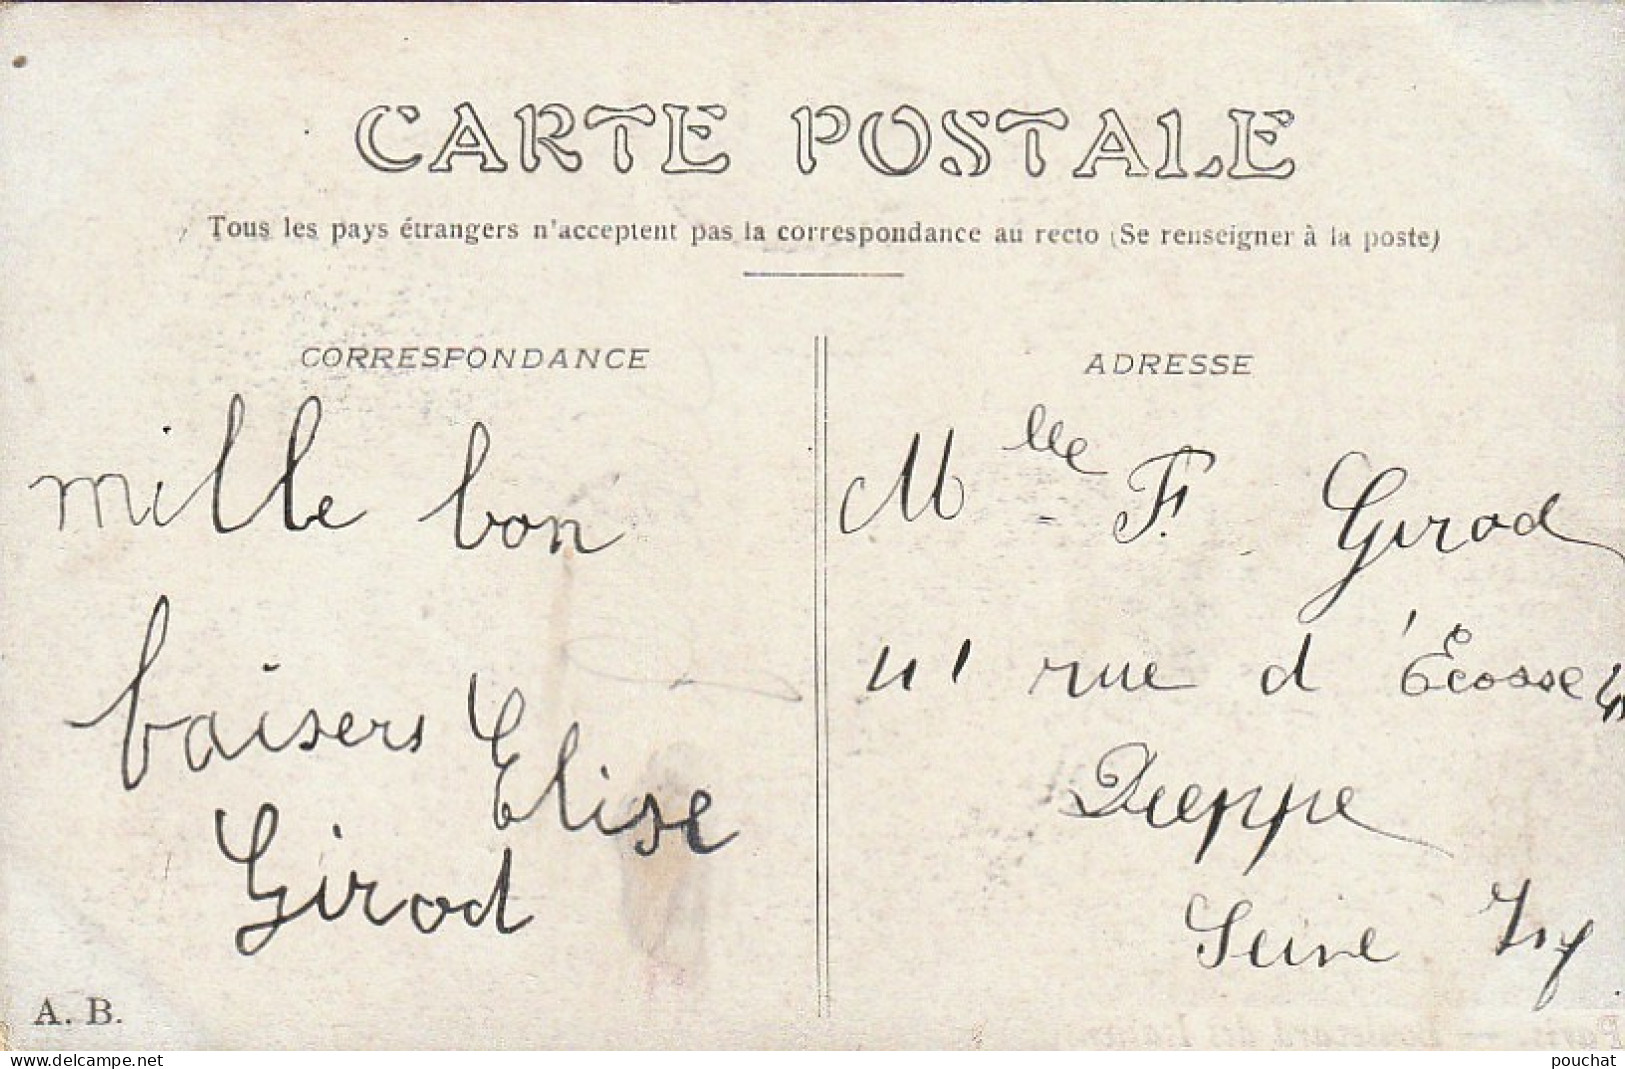 CARTE POSTALE
Tous les pays étrangers n'acceptent pas la correspondance au recto (Se renseigner à la poste)
CORRESPONDANCE
mille bon
baisers Elise
Girod
A. B.
ADRESSE
Mlle F. Girod
rue d'Écosse
Dieppe
Seine Inf
www.delcampe.net
pouchat